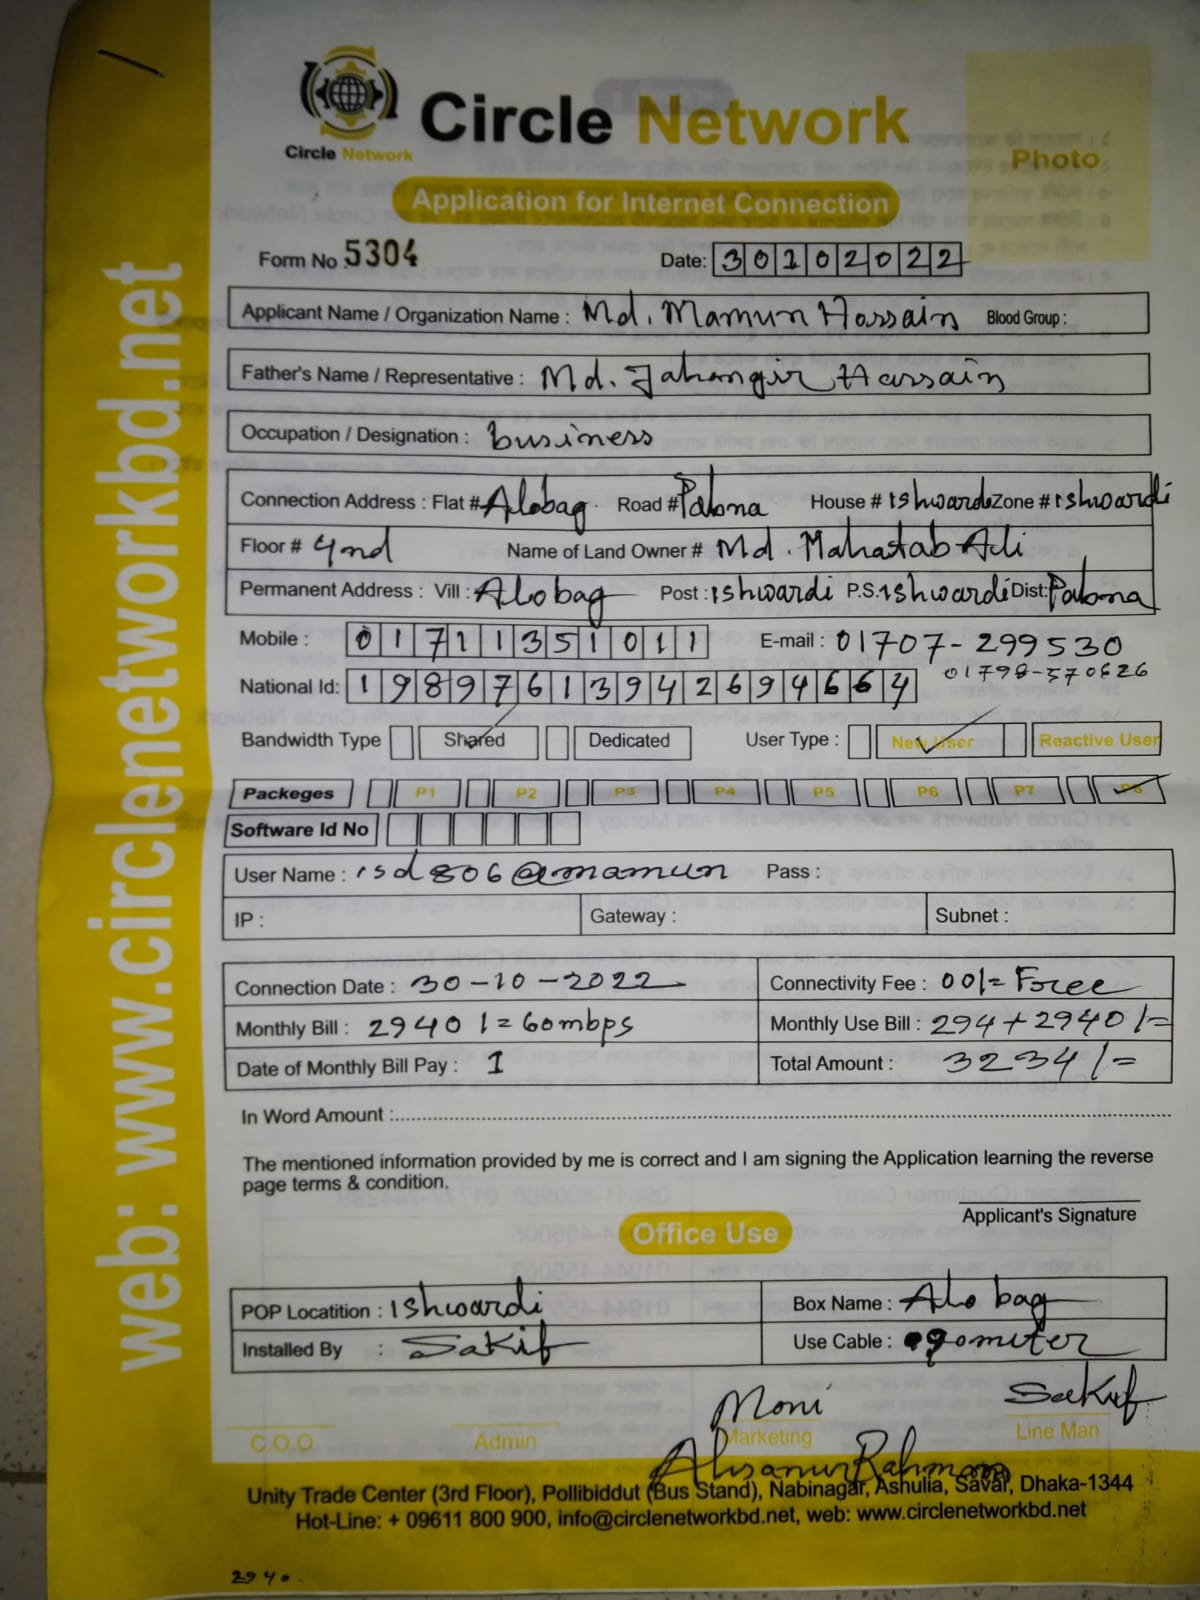 Circle Network
Circle Network
Photo
Application for Internet Connection
Form No 5304 Date: 30102022
Applicant Name / Organization Name : Md. Mamun Hossain Blood Group :
Father's Name / Representative : Md. Jahangir Hassain
Occupation / Designation : business
Connection Address : Flat # Alobag Road # Pabna House # Ishwardi Zone # Ishwardi
Floor # 4nd Name of Land Owner # Md. Mahatab Ali
Permanent Address : Vill : Alobag Post : Ishwardi P.S. Ishwardi Dist: Pabna
Mobile : 01711351011 E-mail : 01707-299530
01798-570626
National Id: 19897613942694664
Bandwidth Type Shared Dedicated User Type : New User Reactive User
Packeges P1 P2 P3 P4 P5 P6 P7 P8
Software Id No
User Name : isd806@mamun Pass :
IP : Gateway : Subnet :
Connection Date : 30-10-2022 Connectivity Fee : 00/= Free
Monthly Bill : 2940/= 60mbps Monthly Use Bill : 294+2940/=
Date of Monthly Bill Pay : 1 Total Amount : 3234/=
In Word Amount :
The mentioned information provided by me is correct and I am signing the Application learning the reverse
page terms & condition.
Applicant's Signature
Office Use
POP Locatition : Ishwardi Box Name : Alo bag
Installed By : Sakif Use Cable : 90meter
Moni Sakif
C.O.O Admin Marketing Line Man
Ahsanur Rahman
Unity Trade Center (3rd Floor), Pollibiddut (Bus Stand), Nabinagar, Ashulia, Savar, Dhaka-1344
Hot-Line: + 09611 800 900, info@circlenetworkbd.net, web: www.circlenetworkbd.net
2940.
web: www.circlenetworkbd.net